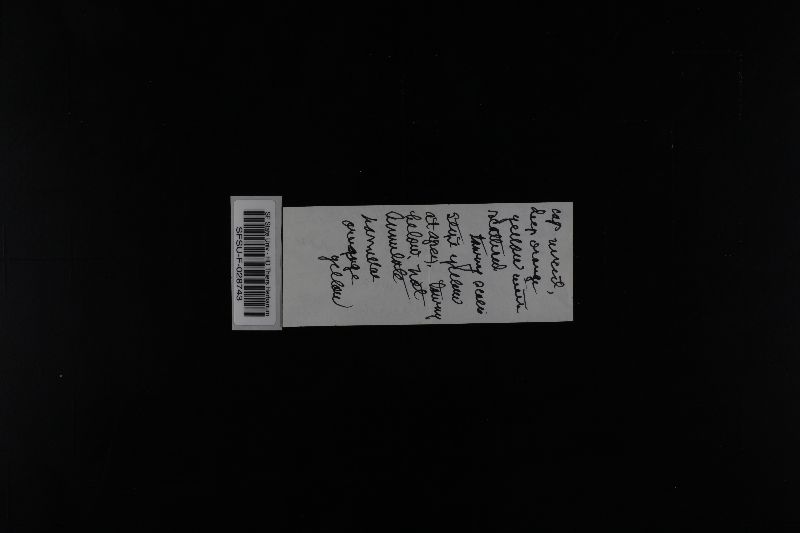 cap viscid,
deep orange
yellow with
scattered
tawny scales
Stipe yellow
at apex, tawny
below, not
Annulate
Lamellae
orange
yellow
SF State Univ - HD Thiers Herbarium
SFSU-F-028743